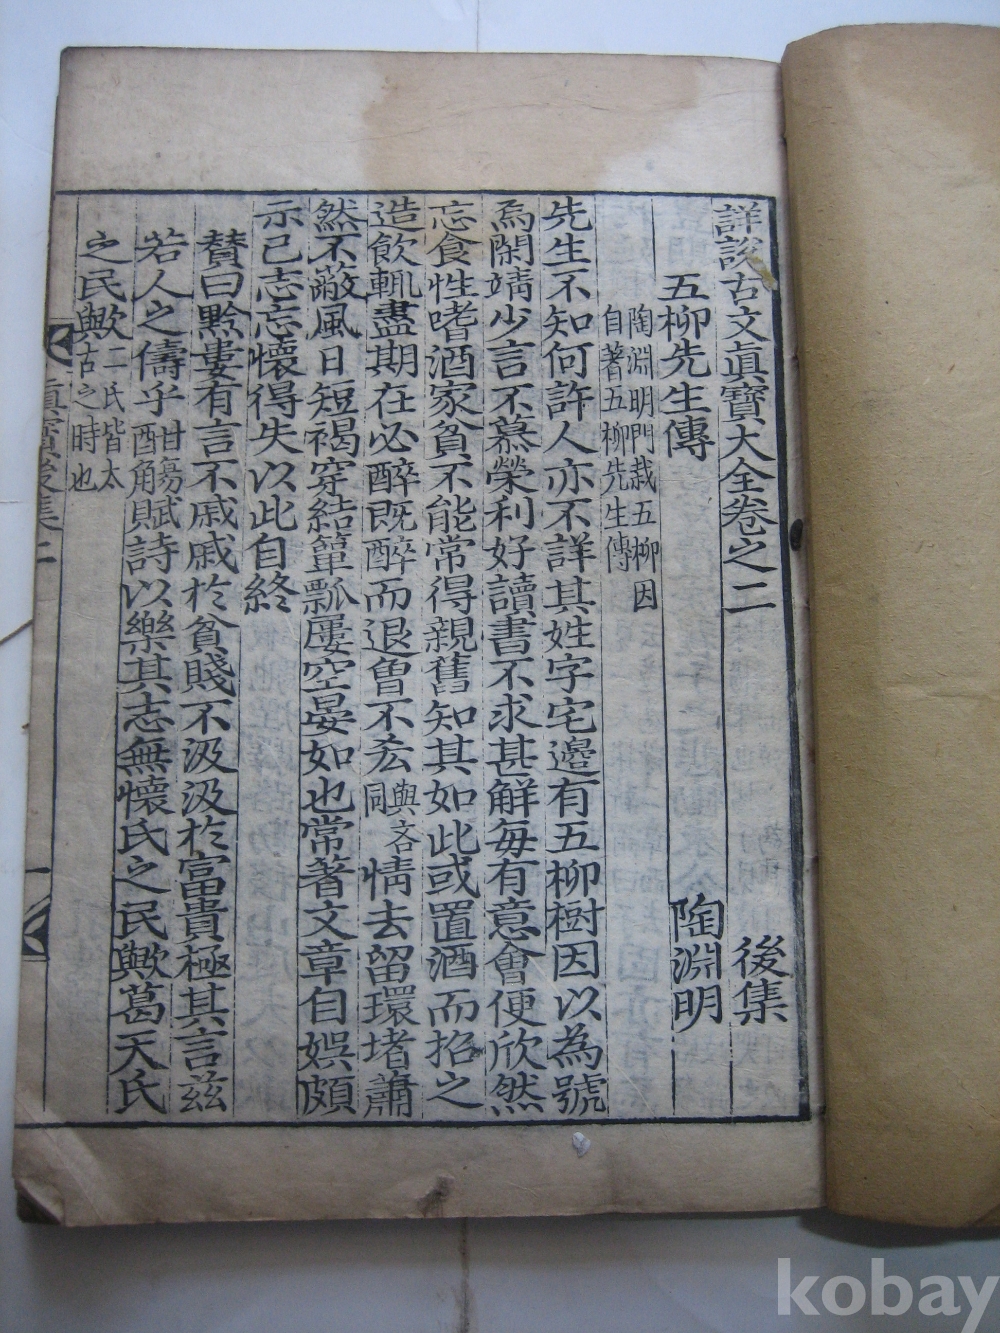 詳説古文眞寶大全卷之二 後集
五柳先生傳 陶淵明
陶淵明門栽五柳因
自著五柳先生傳
先生不知何許人亦不詳其姓字宅邊有五柳樹因以為號
焉閑靖少言不慕榮利好讀書不求甚解每有意會便欣然
忘食性嗜酒家貧不能常得親舊知其如此或置酒而招之
造飲輒盡期在必醉既醉而退曾不吝與吝同情去留環堵蕭
然不蔽風日短褐穿結簞瓢屢空晏如也常著文章自娛頗
示己志忘懷得失以此自終
贊曰黔婁有言不戚戚於貧賤不汲汲於富貴極其言茲
若人之儔乎酣觴賦詩以樂其志無懷氏之民歟葛天氏
之民歟二氏皆太古之時也
眞寶後集二
一
kobay